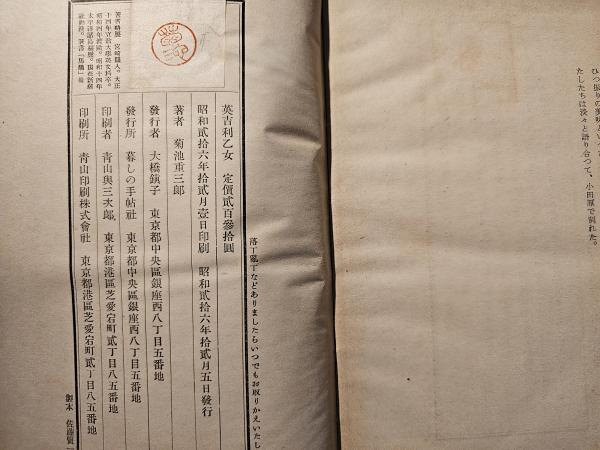 ひつ張りの美味といつて
たしたちは淡々と語り合つて、小田原で別れた。
落丁亂丁などありましたらいつでもお取りかえいたし
英吉利乙女　定價貳百參拾圓
昭和貳拾六年拾貳月壹日印刷　昭和貳拾六年拾貳月五日發行
著者　菊池重三郎
發行者　大橋鎭子　東京都中央區銀座西八丁目五番地
發行所　暮しの手帖社　東京都中央區銀座西八丁目五番地
印刷者　青山與三次郎　東京都港區芝愛宕町貳丁目八五番地
印刷所　青山印刷株式會社　東京都港區芝愛宕町貳丁目八五番地
製本　佐藤
著者略歷　宮崎縣人。大正
十四年立敎大學英文科卒。
昭和四年渡歐。昭和十四年
太平洋諸島遍歷。現在新潮
社勤務。著書「馬籠」他